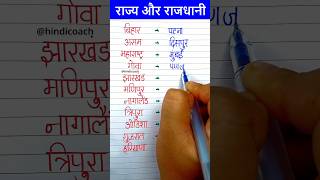 राज्य और राजधानी
बिहार → पटना
असम → दिसपुर
महाराष्ट्र → मुंबई
गोवा → पणज
@hindicoach
झारखंड →
मणिपुर →
नागालैंड →
त्रिपुरा →
ओडिशा →
गुजरात →
हरियाणा →
गोवा
@hindicoach
झारखंड
मणिपुर
नागालैंड
त्रिपुरा